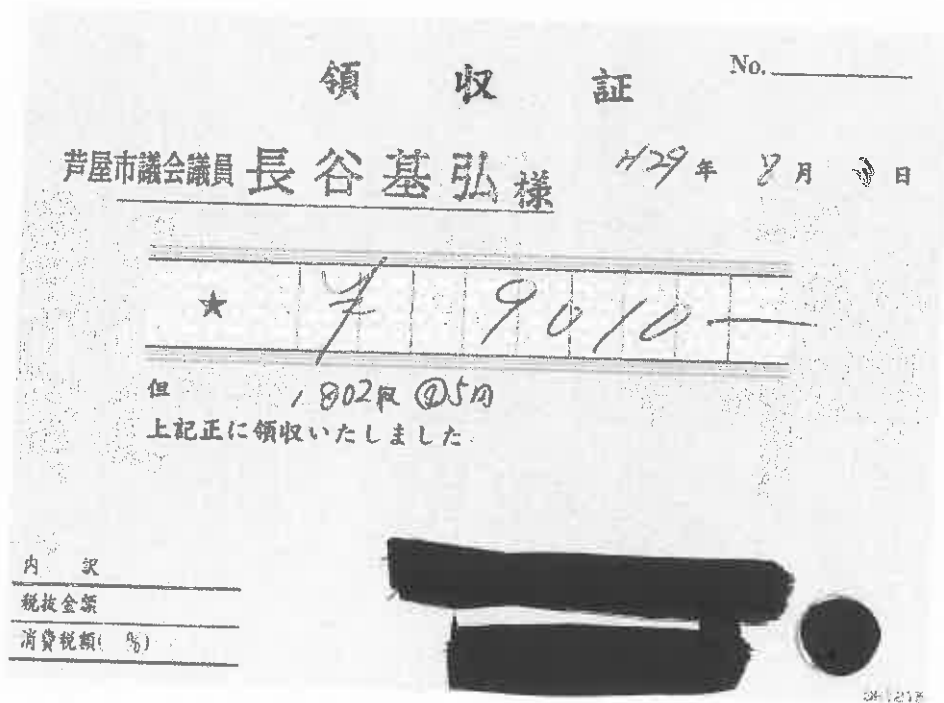 領 収 証
No.
芦屋市議会議員 長谷基弘 様
H29年 8月 日
★ ¥ 9010-
但 1802枚 @5円
上記正に領収いたしました
内 訳
税抜金額
消費税額( %)